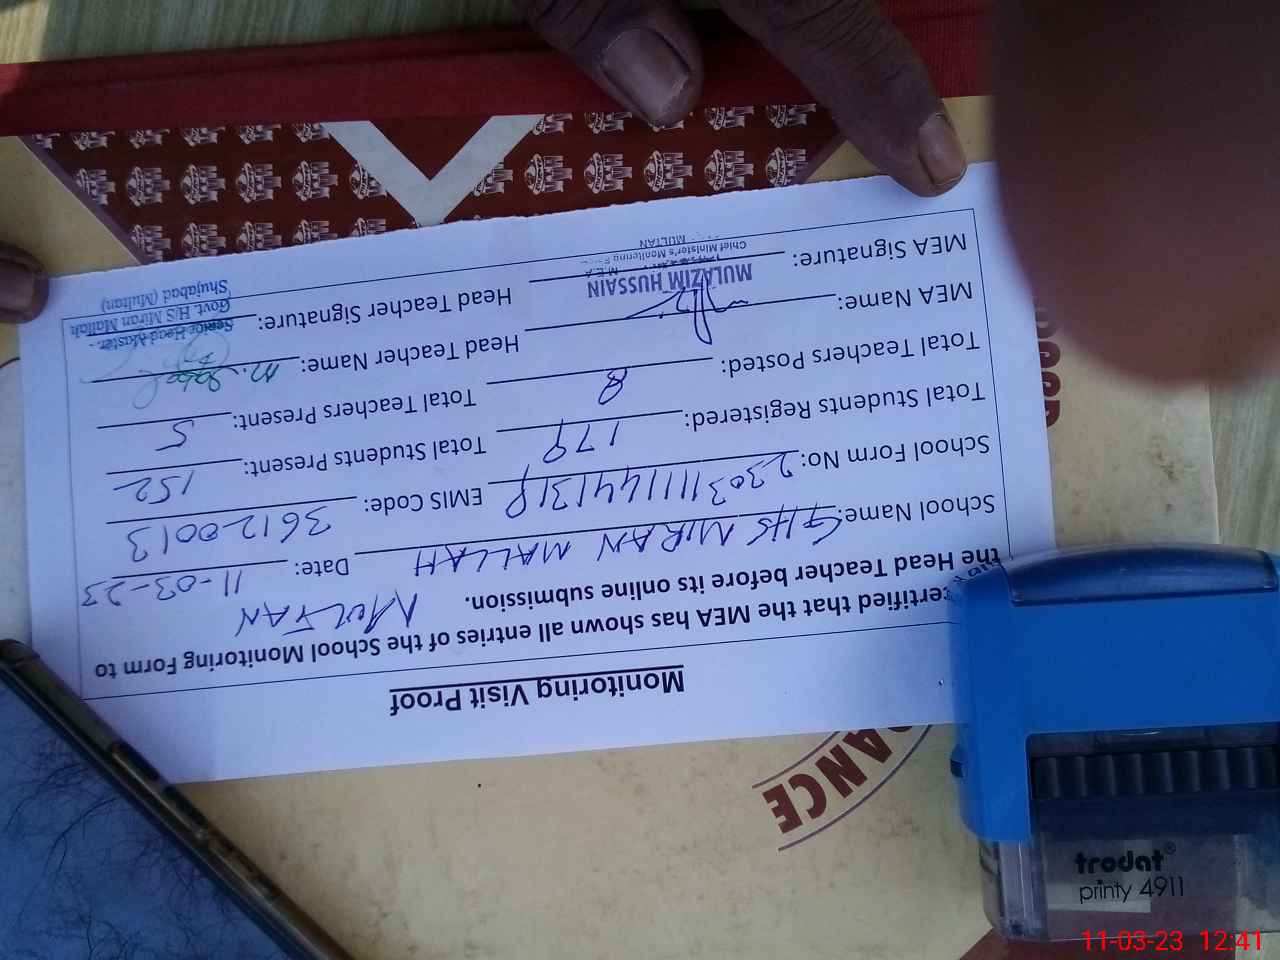 Monitoring Visit Proof
certified that the MEA has shown all entries of the School Monitoring Form to
the Head Teacher before its online submission. MULTAN
School Name: GHS MIRAN MALLAH Date: 11-03-23
School Form No: EMIS Code: 36120013
Total Students Registered: 179 Total Students Present: 152
Total Teachers Posted: 8 Total Teachers Present: 5
MEA Name: Head Teacher Name:
MEA Signature: Head Teacher Signature:
MULAZIM HUSSAIN
M.E.A
Chief Minister's Monitoring
MULTAN
Senior Head Master
Govt. H/S Miran Mallah
Shujabad (Multan)
trodat®
printy 4911
11-03-23 12:41